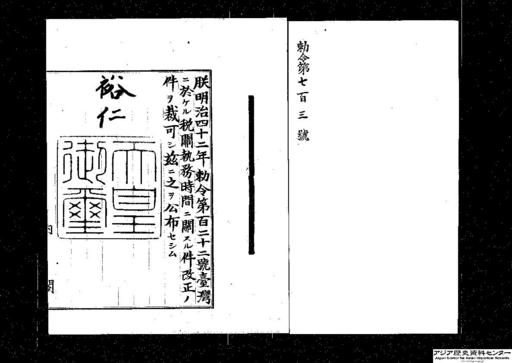 勅令第七百三號
朕明治四十二年勅令第百二十二號臺灣
ニ於ケル税關執務時間ニ關スル件改正ノ
件ヲ裁可シ茲ニ之ヲ公布セシム
裕仁
天皇
御璽
内閣
アジア歴史資料センター
Japan Center for Asian Historical Records